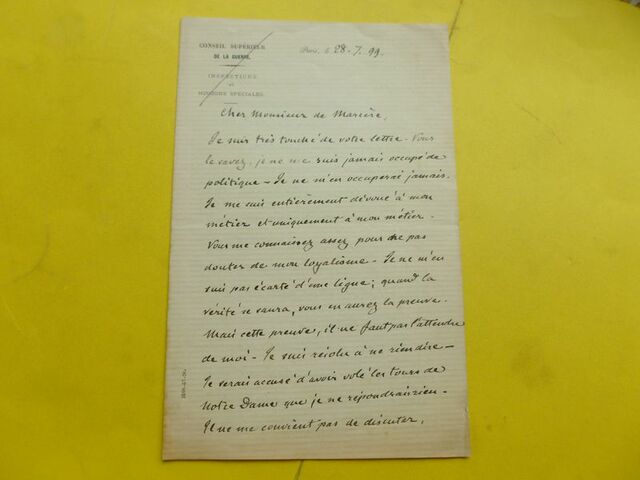 CONSEIL SUPÉRIEUR
DE LA GUERRE.
INSPECTIONS
ET
MISSIONS SPÉCIALES.
Paris, le 28-7.99.
Cher Monsieur de Marcère,
Je suis très touché de votre lettre. Vous
le savez, je ne me suis jamais occupé de
politique - Je ne m'en occuperai jamais.
Je me suis entièrement dévoué à mon
métier et uniquement à mon métier.
Vous me connaissez assez pour ne pas
douter de mon loyalisme - Je ne m'en
suis pas écarté d'une ligne; quand la
vérité se saura, vous en aurez la preuve.
Mais cette preuve, il ne faut pas l'attendre
de moi - Je suis résolu à ne rien dire -
Je serais accusé d'avoir volé les tours de
Notre Dame que je ne répondrais rien -
Il ne me convient pas de discuter,